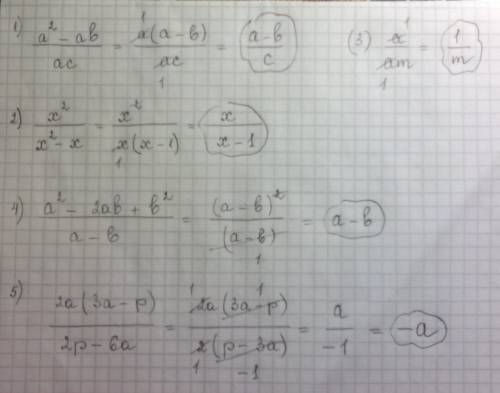 1) (a² - ab)/(ac) = (a(a-b))/(ac) = (a-b)/c (3) x/(xm) = 1/m
2) x²/(x²-x) = x²/(x(x-1)) = x/(x-1)
4) (a² - 2ab + b²)/(a-b) = (a-b)²/(a-b) = a-b
5) (2a(3a-p))/(2p-6a) = (2a(3a-p))/(2(p-3a)) = a/(-1) = -a